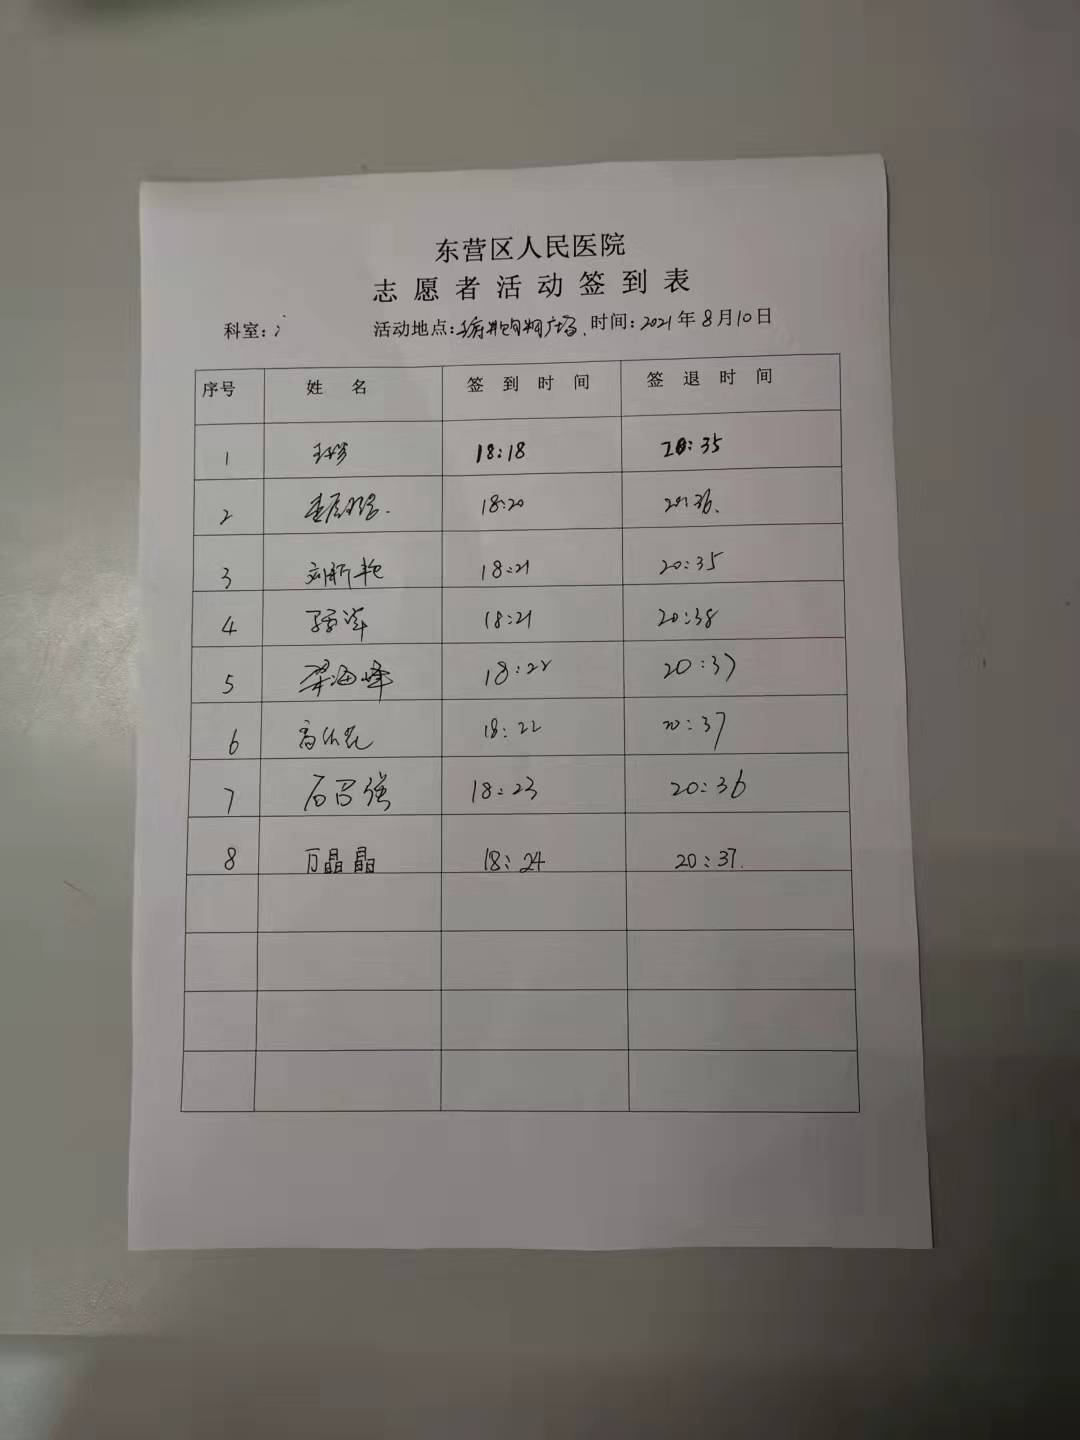 东营区人民医院
志愿者活动签到表
科室: 活动地点: 广场. 时间: 2021年8月10日
序号 姓名 签到时间 签退时间
1 18:18 20:35
2 18:20 20:36.
3 18:21 20:35
4 18:21 20:38
5 梁海峰 18:22 20:37
6 18:22 20:37
7 石召强 18:23 20:36
8 万晶晶 18:24 20:37.